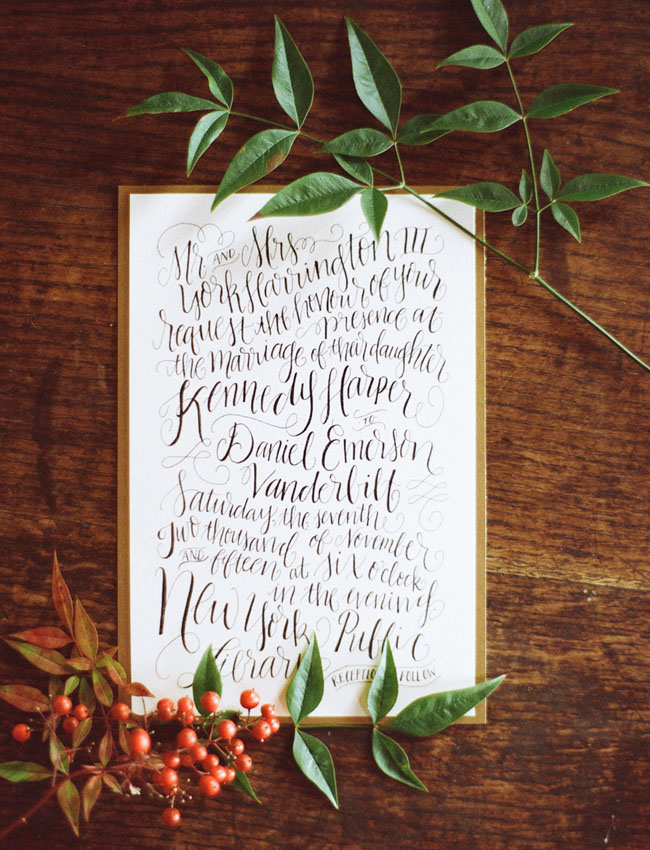 Mr AND Mrs
York Harrington III
request the honour of your
presence at
the marriage of their daughter
Kennedy Harper
TO
Daniel Emerson
Vanderbilt
Saturday, the seventh
of November
Two thousand
AND fifteen at six o'clock
in the evening
New York Public
Library
RECEPTION FOLLOW